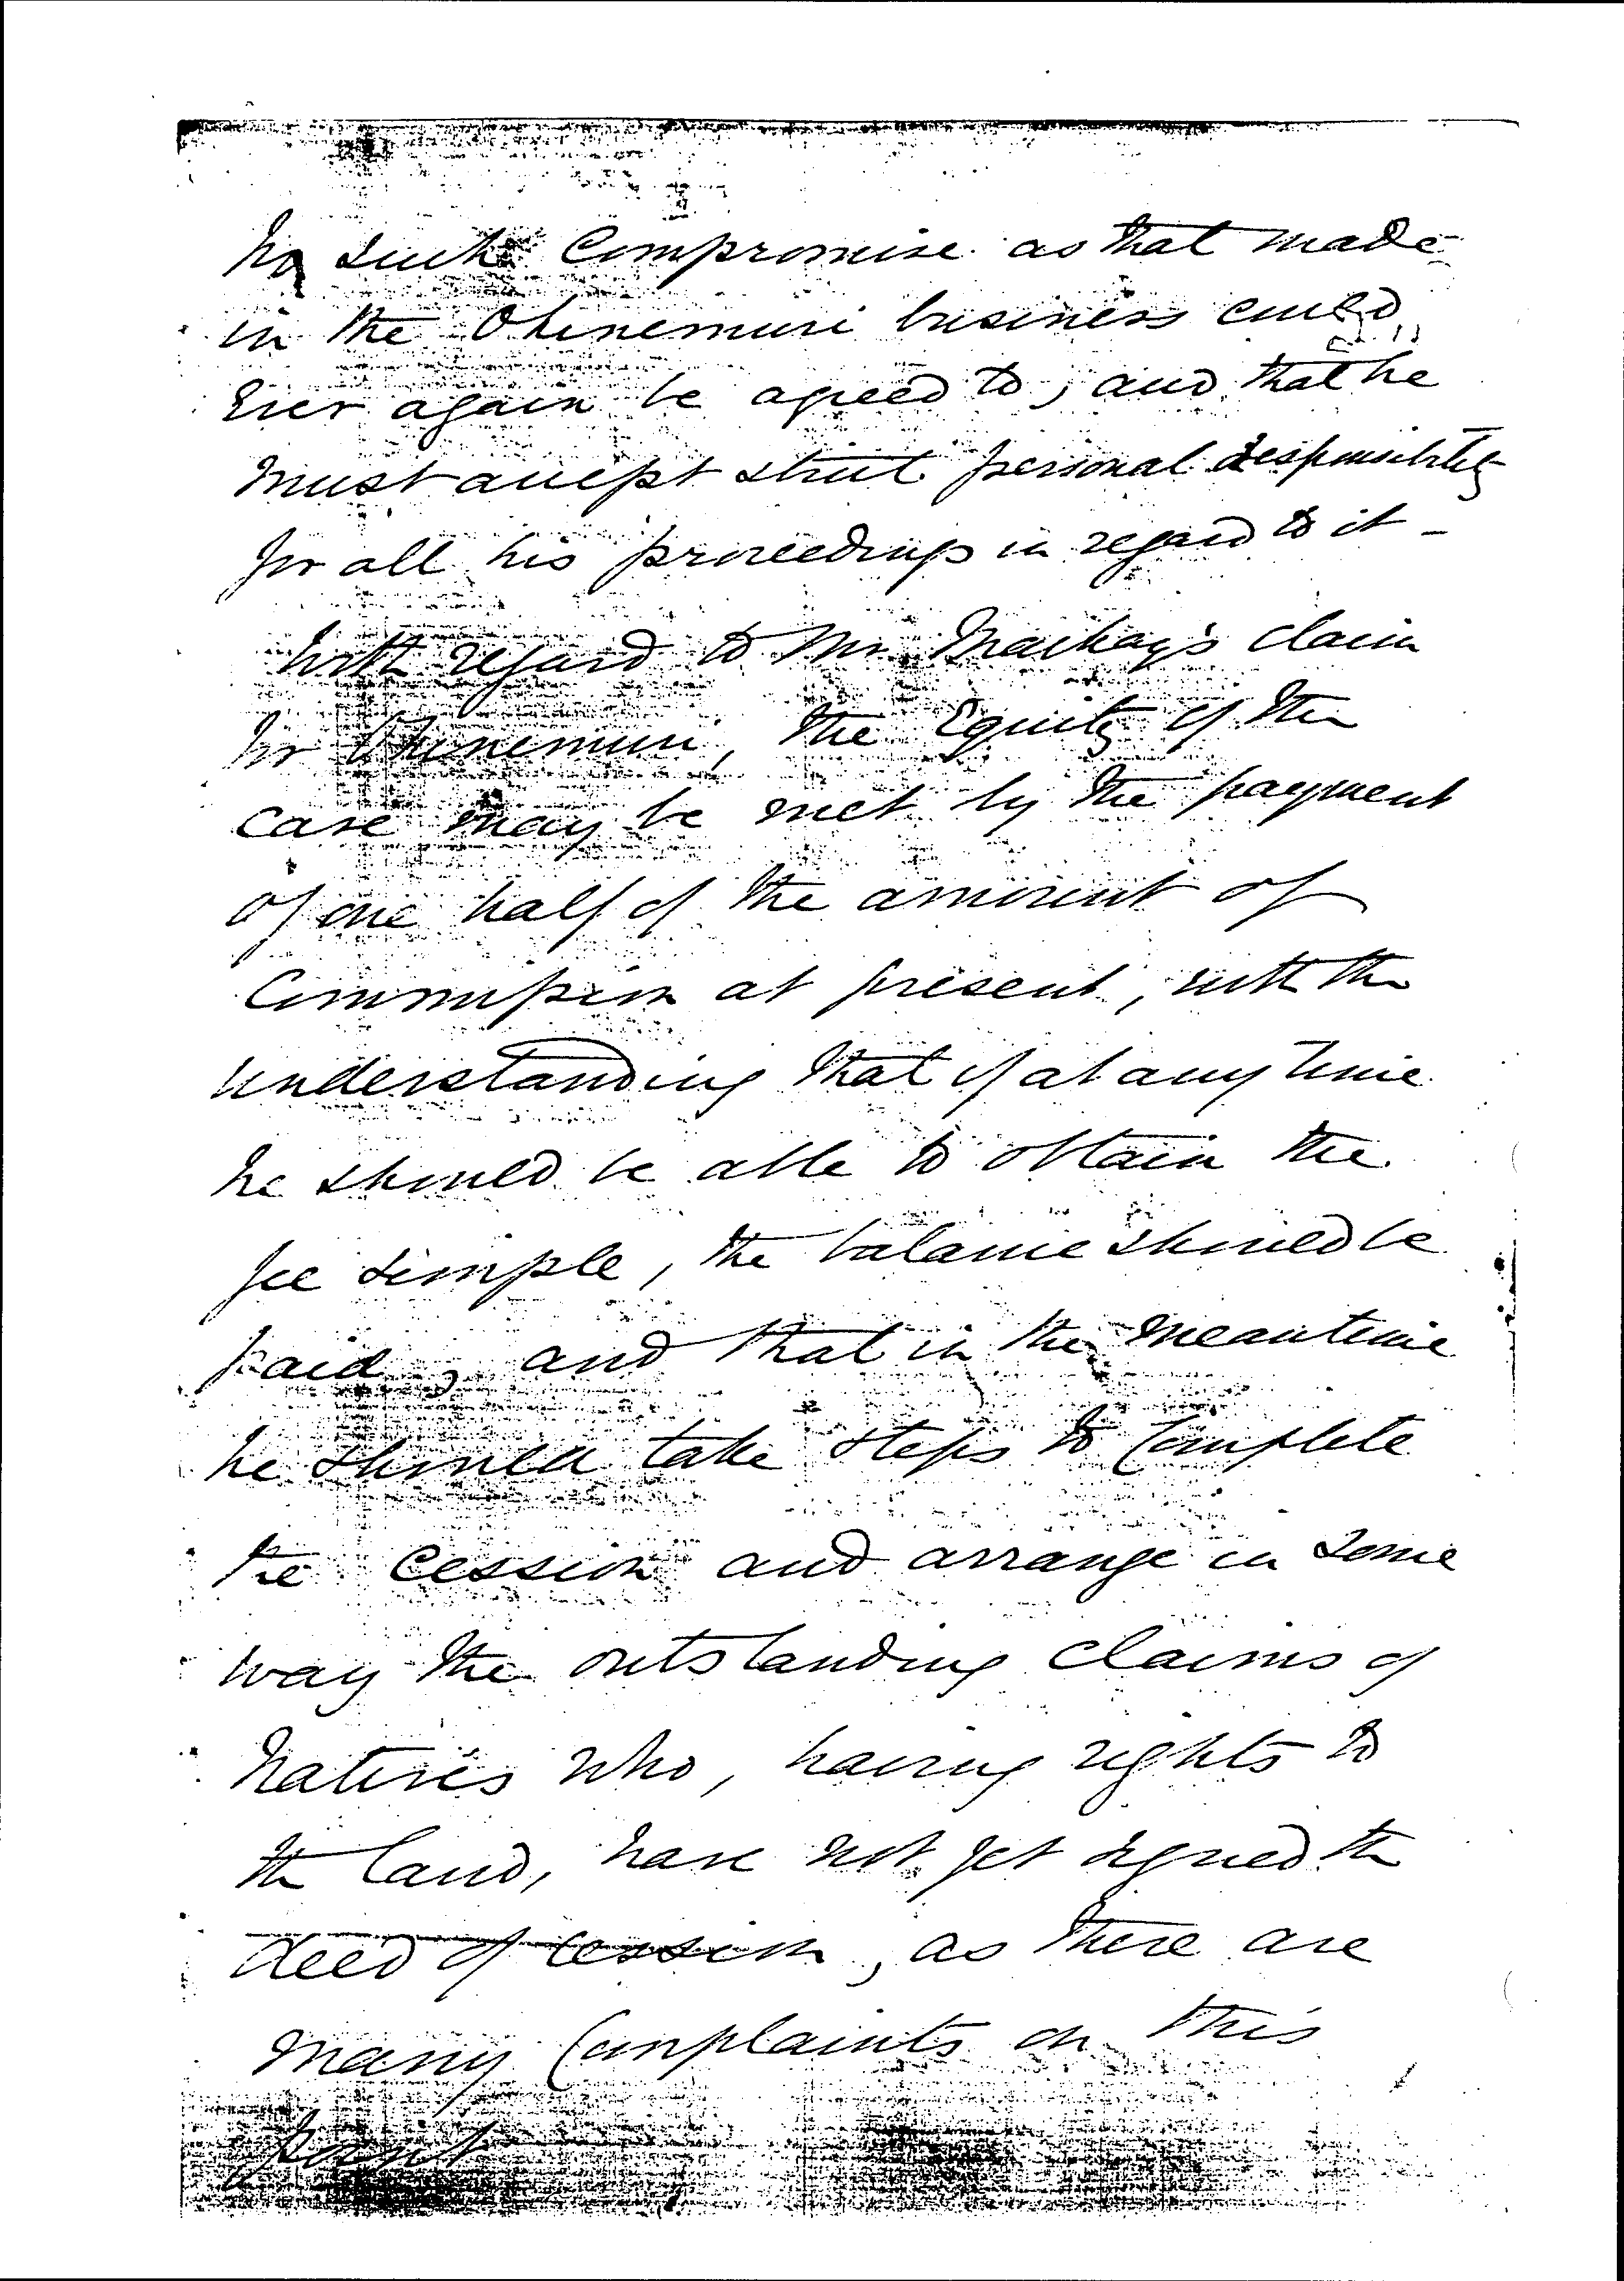 No such Compromise as that made
in the Ohinemuri business could
ever again be agreed to, and that he
must accept strict personal responsibility
for all his proceedings in regard to it -
With regard to Mr. Mackay's claim
for Ohinemuri, the Equity of the
case may be met by the payment
of one half of the amount of
Commission at present, with the
understanding that if at any time
he should be able to obtain the
fee simple, the balance should be
paid, and that in the meantime
he should take steps to Complete
the Cession and arrange in some
way the outstanding claims of
Natives who, having rights to
the land, have not yet signed the
deed of cession, as there are
many Complaints on this
point